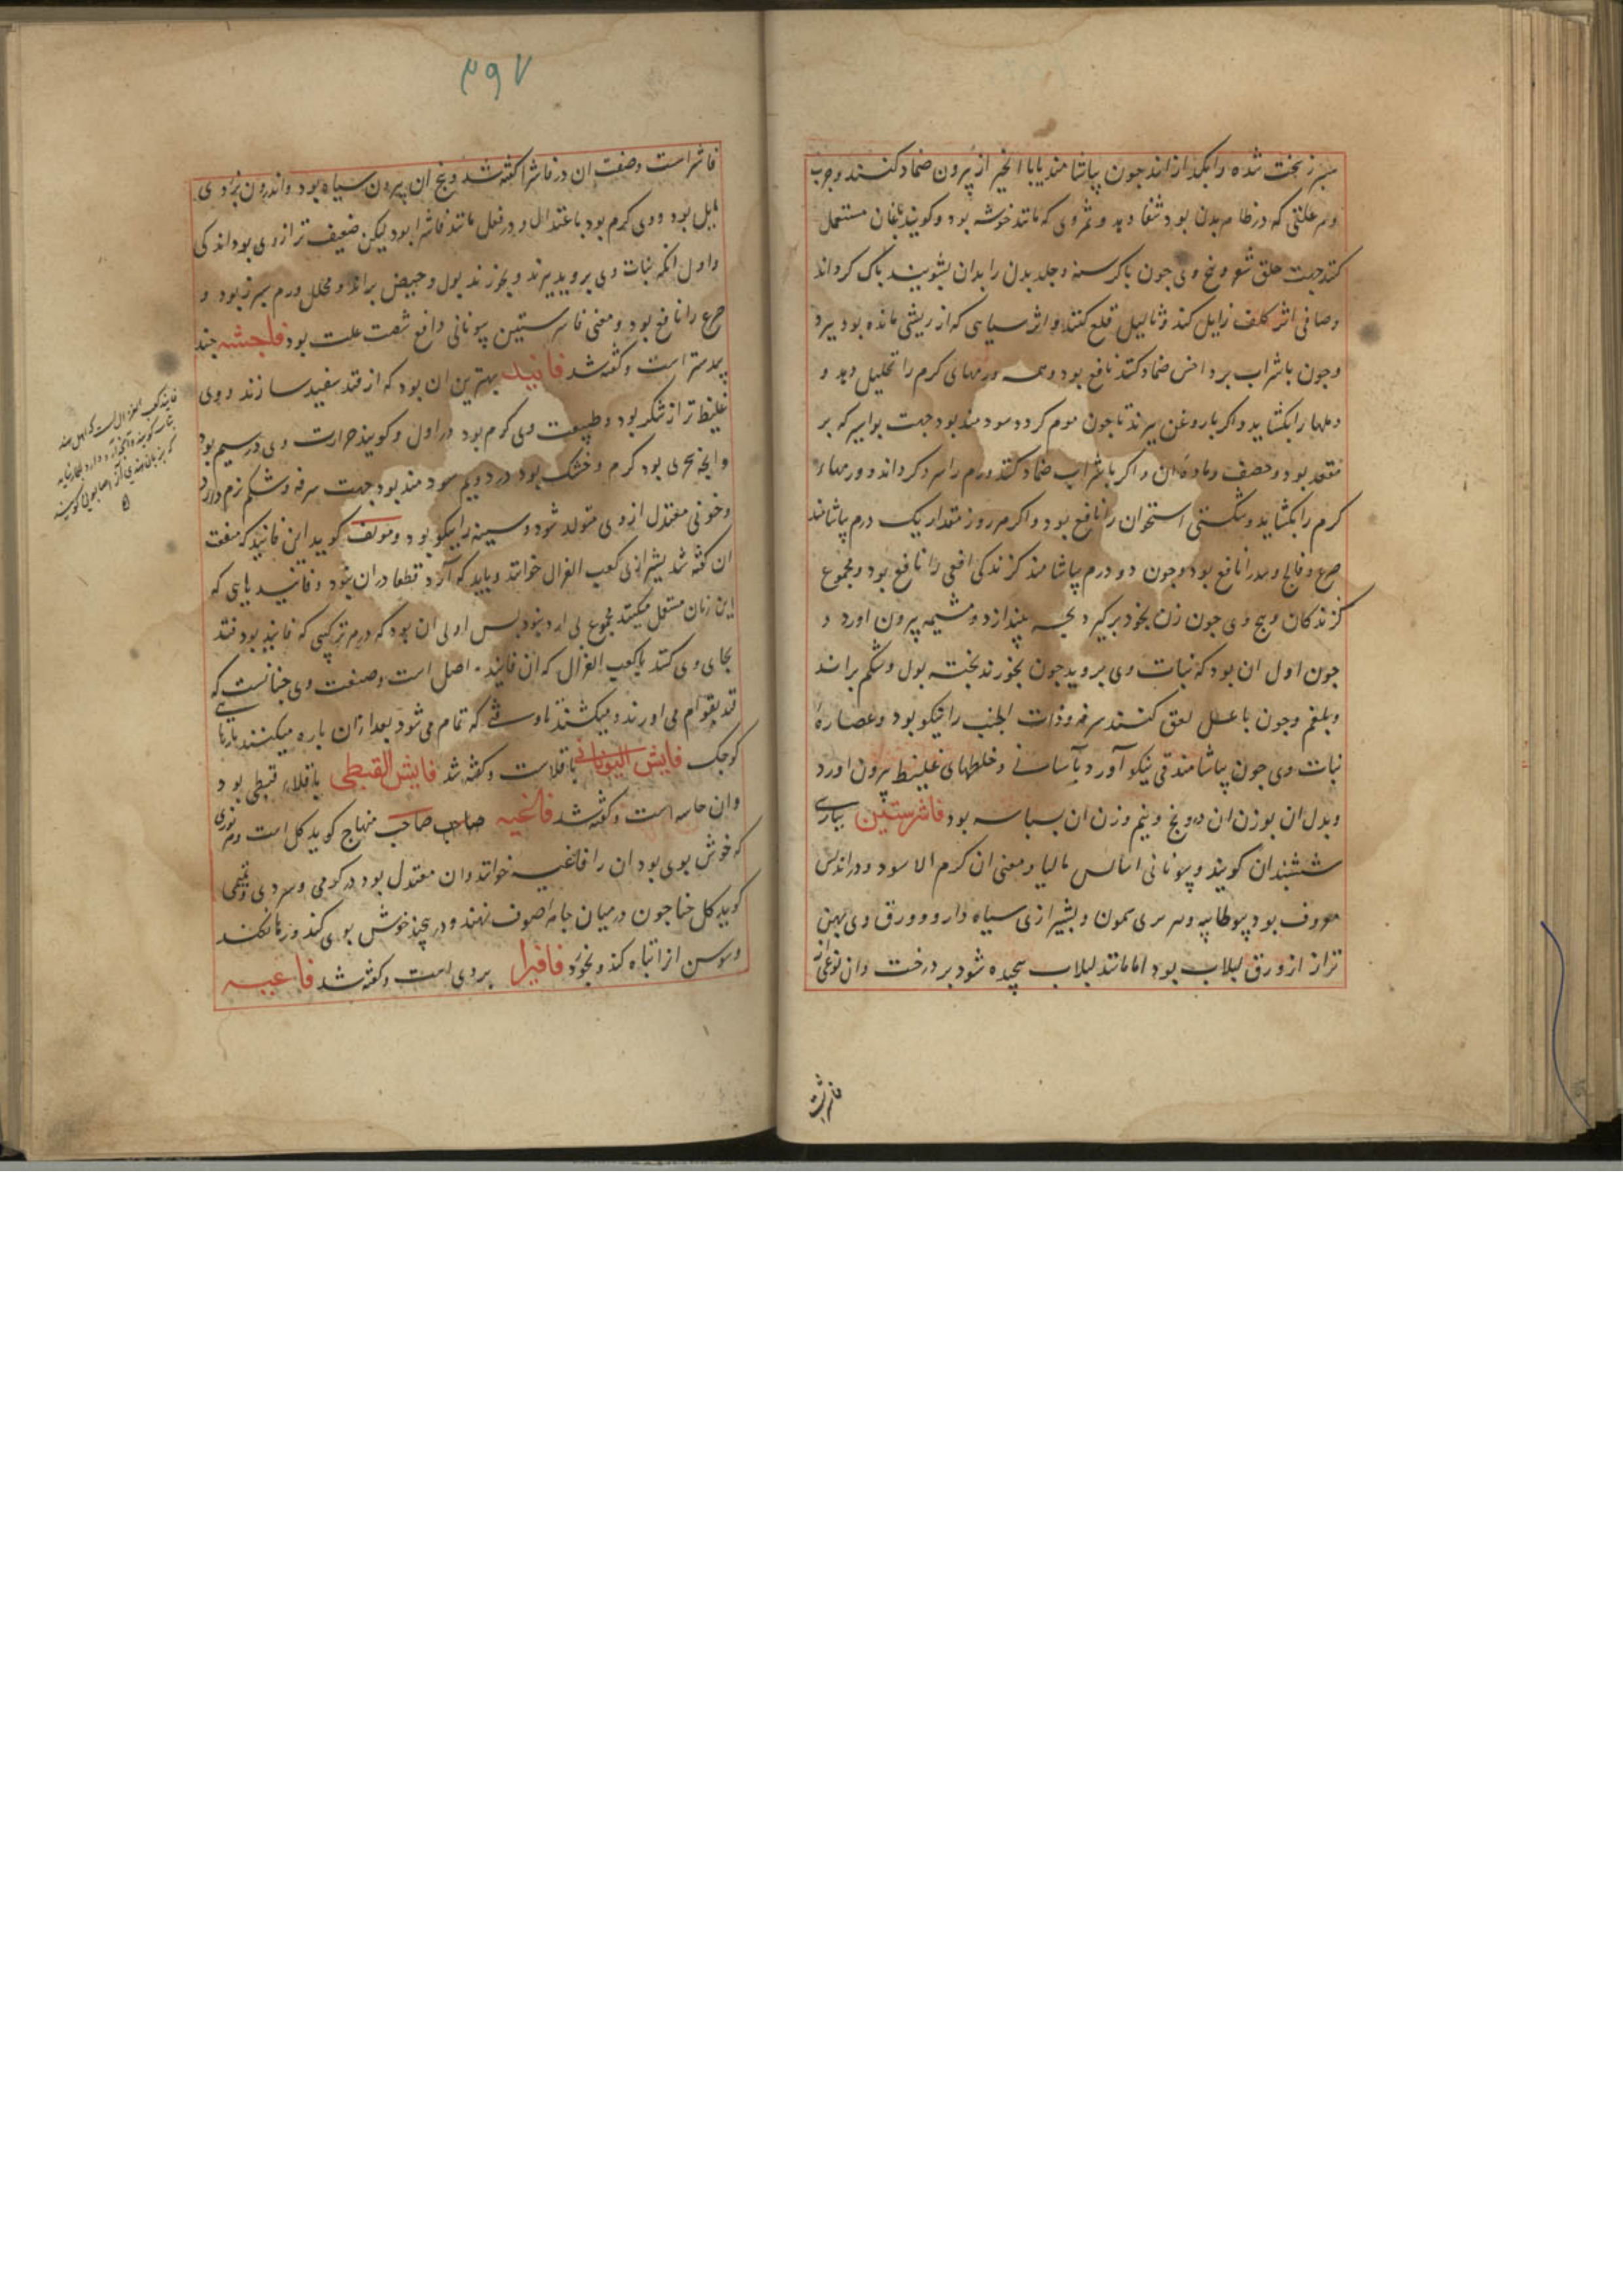 سپرز سخت شده را بکدازاند جون بیاشامند یا با انجیر از بیرون ضماد کنند و جرب
و هر علتی که در ظاهر بدن بود شفا دهد و ثمر وی که مانند خوشه بود و کویند بغان مستعمل
کنند جهت حلق شعر و بیخ وی جون با کرسنه و جلد بدن را بدان بشویند پاک کرداند
و صافی اثر کلف زایل کند و ثالیل قلع کند و اثر سیاهی که از ریشی مانده بود ببرد
و جون با شراب بر داخس ضماد کنند نافع بود و همه ورمهای کرم را تحلیل دهد و
دملها را بکشاید و اکر با روغن بپزند تا جون موم کردد سودمند بود جهت بواسیر که بر
مقعد بود و ان و اکر با شراب ضماد کنند ورم را سرد کرداند و ورمهاء
کرم را بکشاید و شکستی استخوان را نافع بود و اکر هر روز مقدار یک درم بیاشامند
صرع و فالج و سدر را نافع بود و جون دو درم بیاشامند کزندکی افعی را نافع بود و مجموع
کزندکان و بیخ وی جون زن بخود برکیرد بجه بیندازد و مشیمه بیرون اورد و
جون اول ان بود که نبات وی بروید جون بخورند بخته بول و شکم براند
و بلغم و جون با عسل لعق کنند سرفه و ذات الجنب را نیکو بود و عصارهٔ
نبات وی جون بیاشامند قی نیکو آورد بآسانی و خلطهای غلیظ بیرون اورد
و بدل ان بوزن ان درونج و نیم وزن ان بسباسه بود فاشرستین بپارسی
ششبندان کویند و بیونانی انبالس مالیا و معنی ان کرم الاسود و در اندلس
معروف بود ببوطانیه و بیشیرازی سیاه دارو و ورق وی بهن
تر از ورق لبلاب بود اما مانند لبلاب بیجیده شود بر درخت و ان نوعی از
فاشرست
۴۹۷
فاشراست و صفت ان در فاشرا کفته شد و بیخ ان بیرون سیاه بود و اندرون بزردی
مایل بود و وی کرم بود باعتدال و در فعل مانند فاشرا بود لیکن ضعیف تر از وی بود اندکی
و اول انکه نبات وی بروید بپزند و بخورند بول و حیض براند و محلل ورم سپرز بود و
صرع را نافع بود و معنی فاشرستین بیونانی دافع شصت علت بود فاجشه جند
بیدستر است و کفته شد فانید بهترین ان بود که از قند سفید سازند و وی
غلیظ تر از شکر بود و طبیعت وی کرم بود در اول و کویند حرارت وی در سیم بود
و انجه بحری بود کرم و خشک بود در دویم سودمند بود جهت سرفه و شکم نرم دارد
و خونی معتدل از وی متولد شود و سینه را نیکو بود و مولف کوید این فانید که صفت
ان کفته شد بشیرازی کعب الغزال خوانند و باید که آرد قطعا در ان نبود و فانیدهایی که
این زمان مستعمل میکنند مجموع بی ارد نبود بس اولی ان بود که در هر ترکیبی که فانید بود قند
بجای وی کنند یا کعب الغزال که ان فانید اصل است و صنعت وی جنانست که
قند بقوام می اورند و میکشند تا وقتی که تمام می شود بعد ازان باره میکنند بارهای
کوجک فایش الیونانی باقلاست و کفته شد فایش القبطی باقلاء قبطی بود
و ان جامسه است و کفته شد فاغیه صاحب صاحب منهاج کوید کل است و هر نوری
که خوش بوی بود ان را فاغیه خوانند و ان معتدل بود در کرمی و سردی و تمیمی
کوید کل حنا جون در میان جامه صوف نهند و در بیجند خوش بوی کند و رها نکنند
و سوس انرا تباه کند و بخورد فافیرا بردی است و کفته شد فاغیه